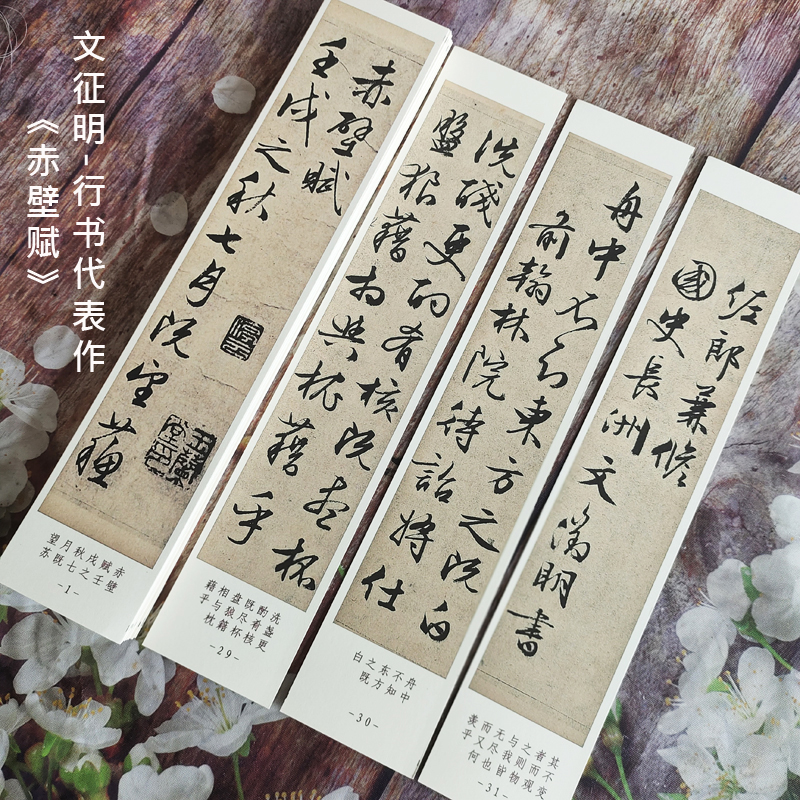 文征明-行书代表作
《赤壁赋》
赤壁賦
壬戌之秋七月既望蘇
赤壁
赋壬
戌之
秋七
月既
望苏
-1-
洗琖更酌肴核既盡杯
盤狼藉相與枕藉乎
洗盏更
酌肴核
既尽杯
盘狼藉
相与枕
藉乎
-29-
舟中不知東方之既白
前翰林院待詔將仕
舟中
不知
东方
之既
白
-30-
佐郎兼修
國史長洲文徵明書
其不变
者而观
之则物
与我皆
无尽也
而又何
羡乎
-31-